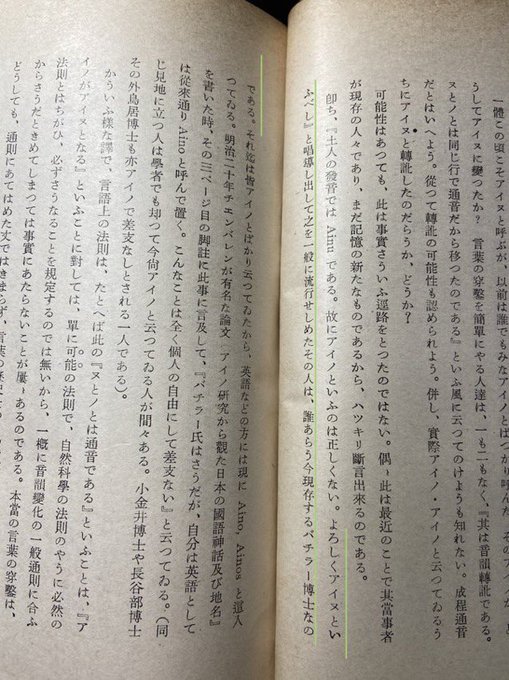 一體この頃こそアイヌと呼ぶが、以前は誰でもみなアイノと呼んだ。その
うしてアイヌに變つたか？　言葉の穿鑿を簡單にやる人達は、一も二もなく、『其は音韻轉訛である。
ヌとノとは同じ行で通音だから移つたのである』といふ風に云つてのけようも知れない。成程通音
だとはいへよう。從つて轉訛の可能性も認められよう。併し、實際アイノ・アイノと云つてゐるう
ちにアイヌと轉訛したのだらうか、どうか？
可能性はあつても、此は事實さういふ逕路をとつたのではない。偶〻此は最近のことで其當事者
が現存の人々であり、まだ記憶の新たなものであるから、ハツキリ斷言出來るのである。
卽ち、『土人の發音では Ainu である。故にアイノといふのは正しくない。よろしくアイヌとい
ふべし』と唱導し出して之を一般に流行せしめたその人は、誰あらう今現存するバチラー博士なの
である。それ迄は皆アイノとばかり云つてゐたから、英語などの方には現に Aino, Ainos と這入
つてゐる。明治二十年チエンバレンが有名な論文『アイノ研究から觀た日本の國語神話及び地名』
を書いた時、その二ページ目の脚註に此事に言及して、『バチラー氏はさうだが、自分は英語として
は從來通り Aino と呼んで置く。こんなことは全く個人の自由にして差支ない』と云つてゐる。（同
じ見地に立つ人は學者でも却つて今尚アイノと云つてゐる人が間々ある。小金井博士や長谷部博士
その外鳥居博士も亦アイノで差支なしとされる一人である）。
かういふ樣な譯で、言語上の法則は、たとへば此の『ヌとノとは通音である』といふことは、『ア
イノがアイヌとなる』といふことに對しては、單に可能の法則で、自然科學の法則のやうに必然の
法則とはちがひ、必ずさうなることを規定するのでは無いから、一概に音韻變化の一般通則に合ふ
からさうだときめてしまつては事實にあたらないことが屢〻あるのである。本當の言葉の穿鑿は、
どうしても、通則にあてはめた丈ではきまらず、言葉の歷史